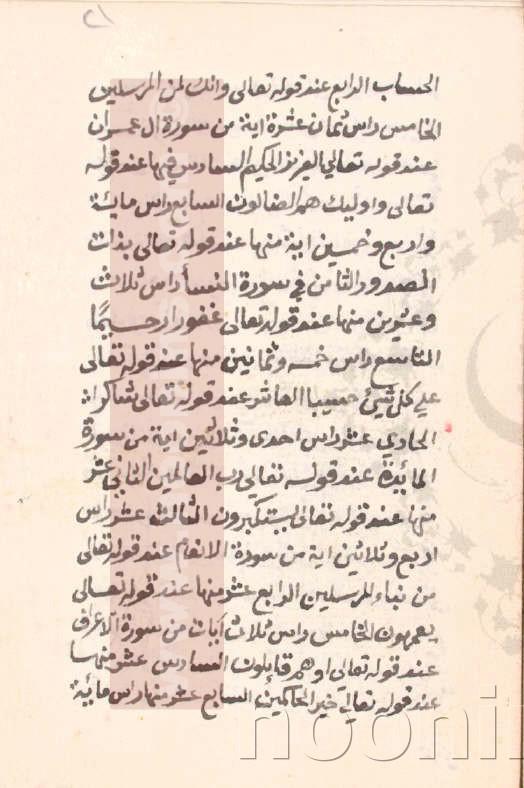 ٢١
الحساب الرابع عند قوله تعالى وانك لمن المرسلين
الخامس راس ثمان عشرة اية من سورة ال عمران
عند قوله تعالي العزيز الحكيم السادس فيها عند قوله
تعالى واوليك هم الضالون السابع راس ماية
واربع وخمسين اية منها عند قوله تعالى بذات
الصدور والثامن في سورة النسأ راس ثلاث
وعشرين منها عند قوله تعالى غفورا رحيمًا
التاسع راس خمسه وثمانين منها عند قوله تعالى
علي كل شيئ حسيبا العاشر عند قوله تعالى شاكرا
الحادي عشر راس احدى وثلاثين اية من سورة
المائدة عند قوله تعالى رب العالمين الثاني عشر
منها عند قوله تعالى يستكبرون الثالث عشر راس
اربع وثلاثين اية من سورة الانعام عند قوله تعالى
من نباء المرسلين الرابع عشر منها عند قوله تعالى
يعمهون الخامس راس ثلاث آيات من سورة الاعراف
عند قوله تعالى او هم قايلون السادس عشر منها
عند قوله تعالى خير الحاكمين السابع عشر منها راس مائية
nooni